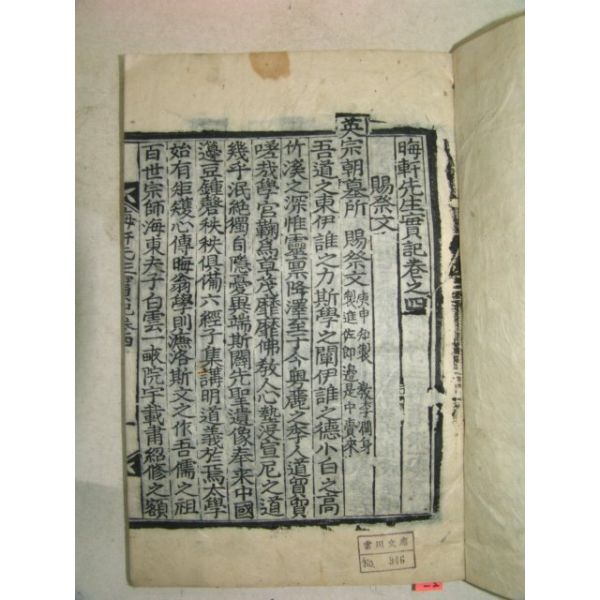 晦軒先生實記卷之四
賜祭文
英宗朝墓所 賜祭文 庚申知製 敎李潤身
製進佐郎邊是中賫來
吾道之東伊誰之力斯學之闡伊誰之德小白之高
竹溪之深惟靈稟降澤至于今粤麗之季人道貿貿
嗟哉學宮鞠爲草茂靡靡佛敎人心墊浸宣尼之道
幾乎泯絶獨自隱憂異端斯闢先聖遺像奉來中國
籩豆鍾磬秩秩俱備六經子集講明道義於焉太學
始有矩矱心傳晦翁學則濂洛斯文之作吾儒之祖
百世宗師海東夫子白雲一畝院宇載肅紹修之額
雲川文庫
No. 946